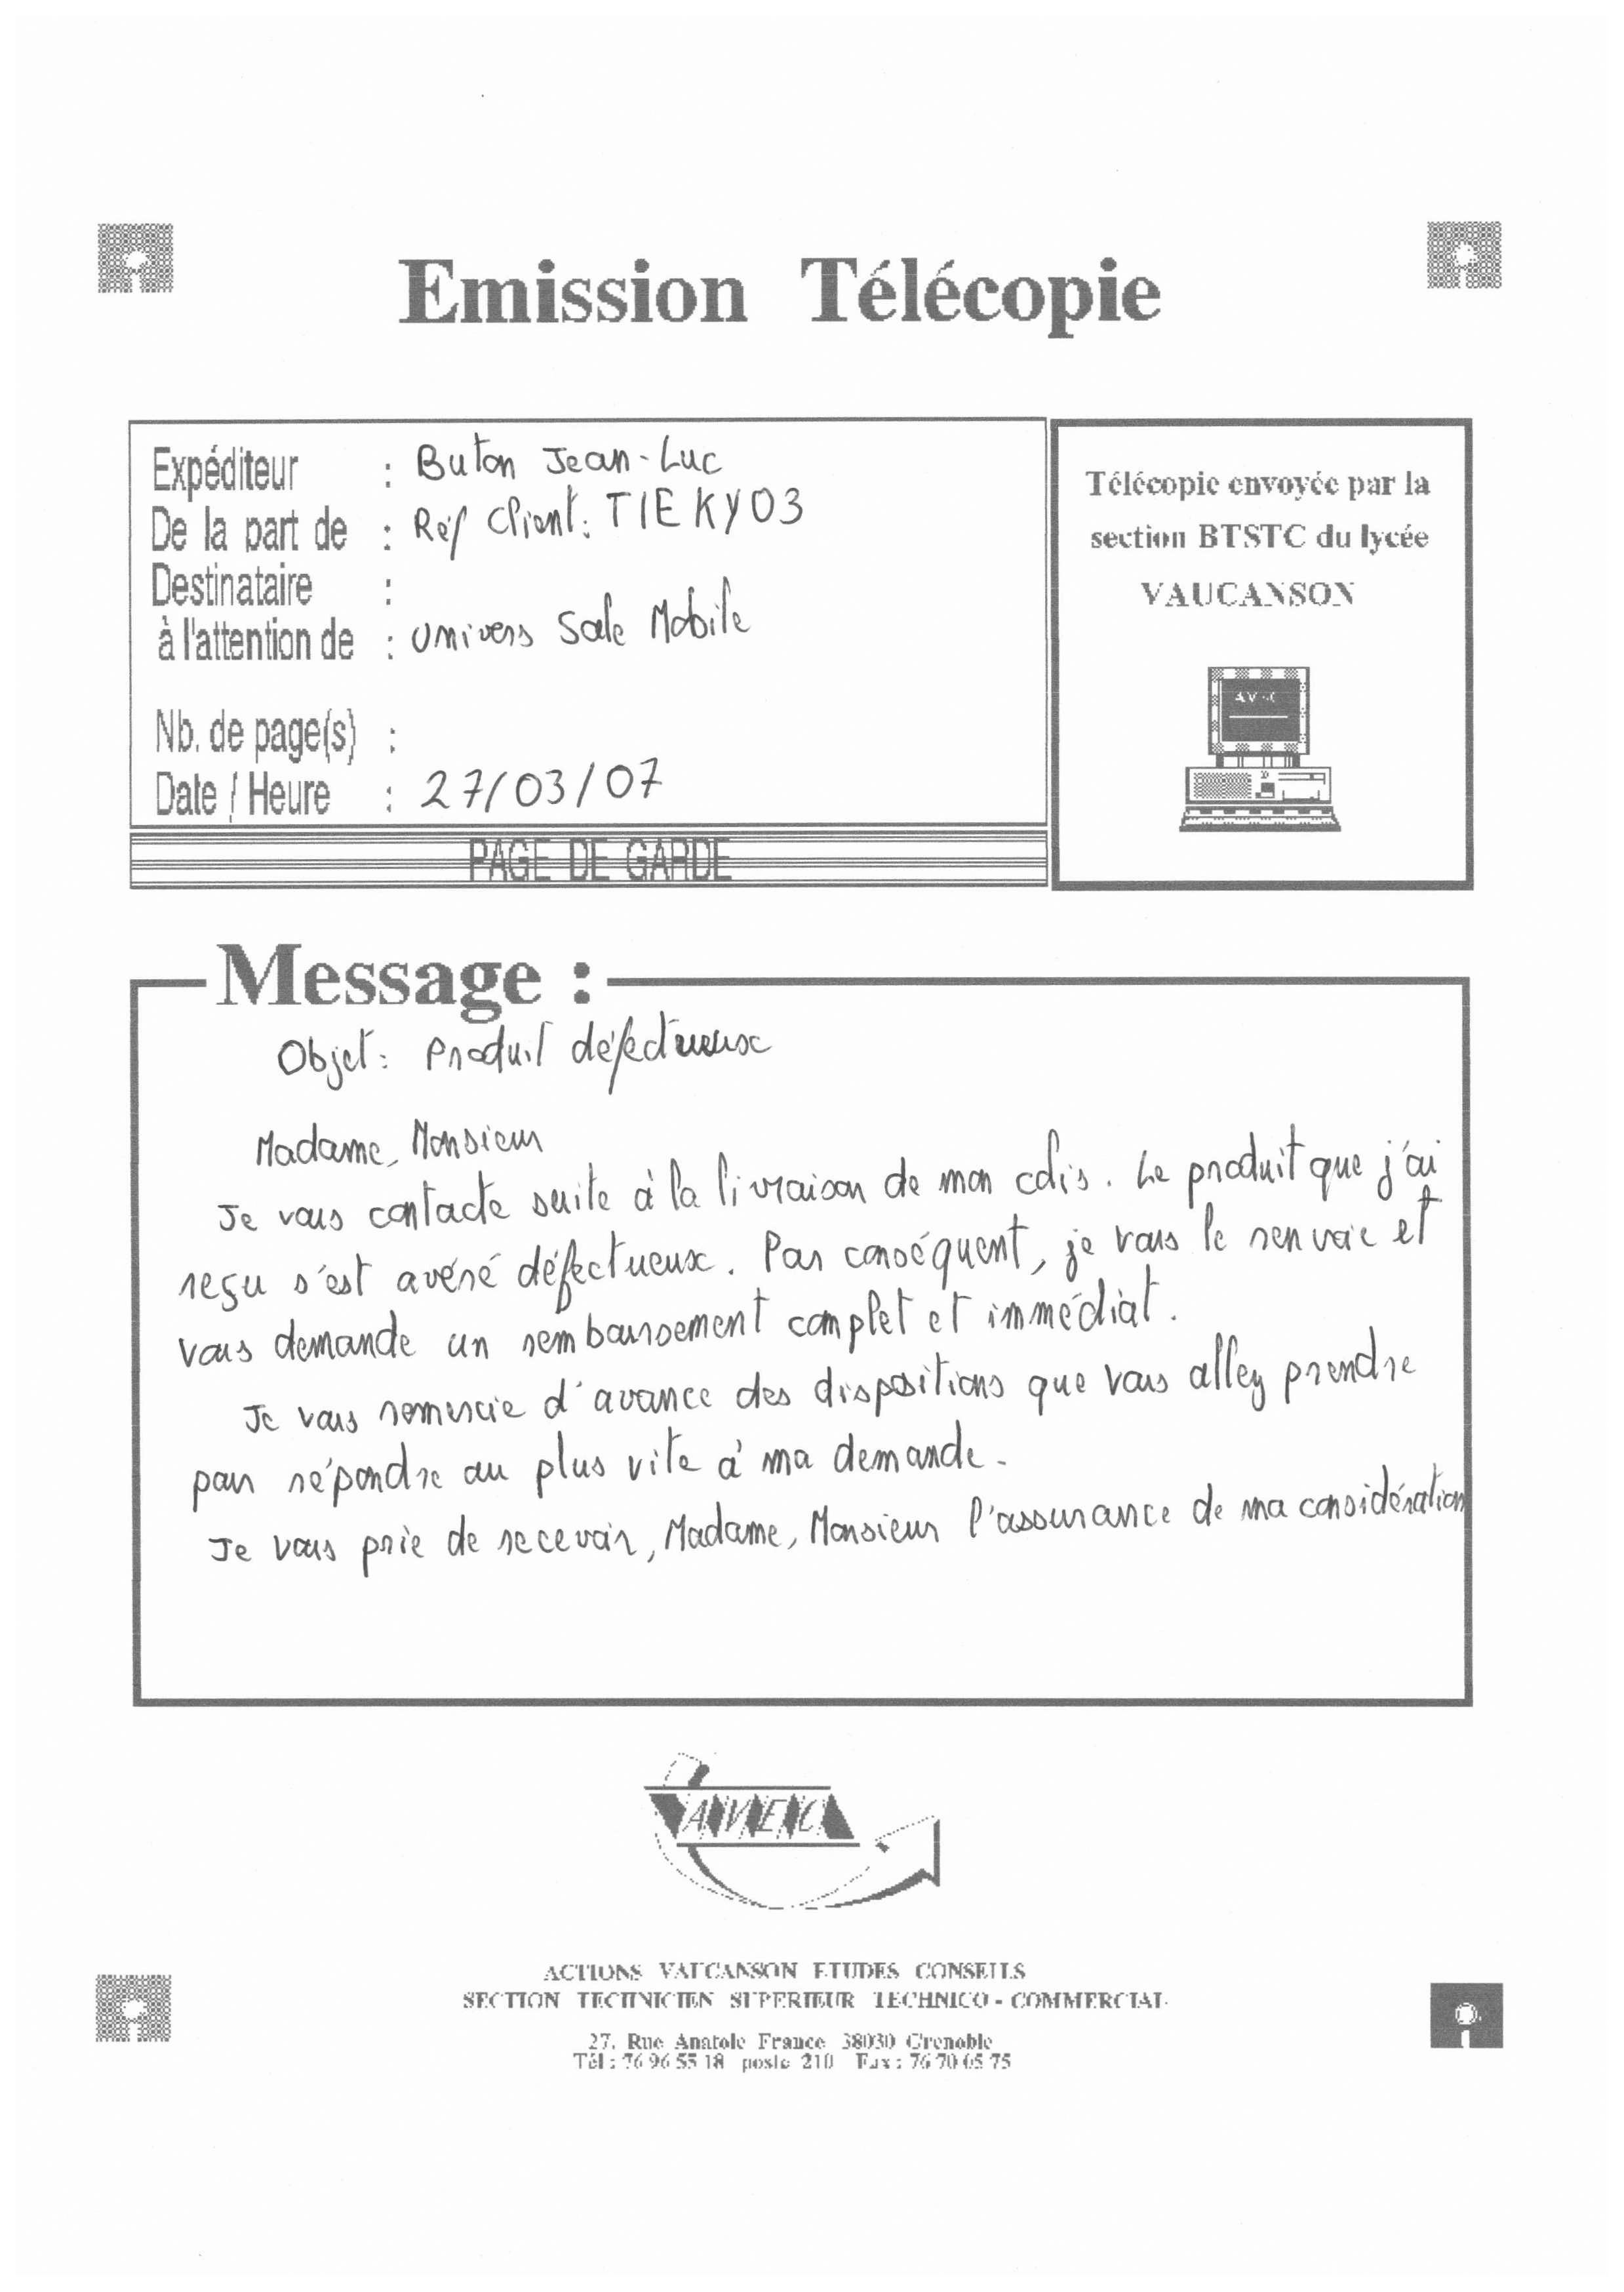 Emission Télécopie
Expéditeur : Buton Jean-Luc
De la part de : Réf Client: TIEKY03
Destinataire :
à l'attention de : Univers Sale Mobile
Nb. de page(s) :
Date / Heure : 27/03/07
PAGE DE GARDE
Télécopie envoyée par la
section BTSTC du lycée
VAUCANSON
Message :
Objet: Produit défectueux
Madame, Monsieur
Je vous contacte suite à la livraison de mon colis. Le produit que j'ai
reçu s'est avéré défectueux. Par conséquent, je vous le renvoie et
vous demande un remboursement complet et immédiat.
Je vous remercie d'avance des dispositions que vous allez prendre
pour répondre au plus vite à ma demande.
Je vous prie de recevoir, Madame, Monsieur l'assurance de ma considération
AVEC
ACTIONS VAUCANSON ETUDES CONSEILS
SECTION TECHNICIEN SUPERIEUR TECHNICO - COMMERCIAL
27, Rue Anatole France 38030 Grenoble
Tél : 76 96 55 18 poste 210 Fax : 76 70 05 75